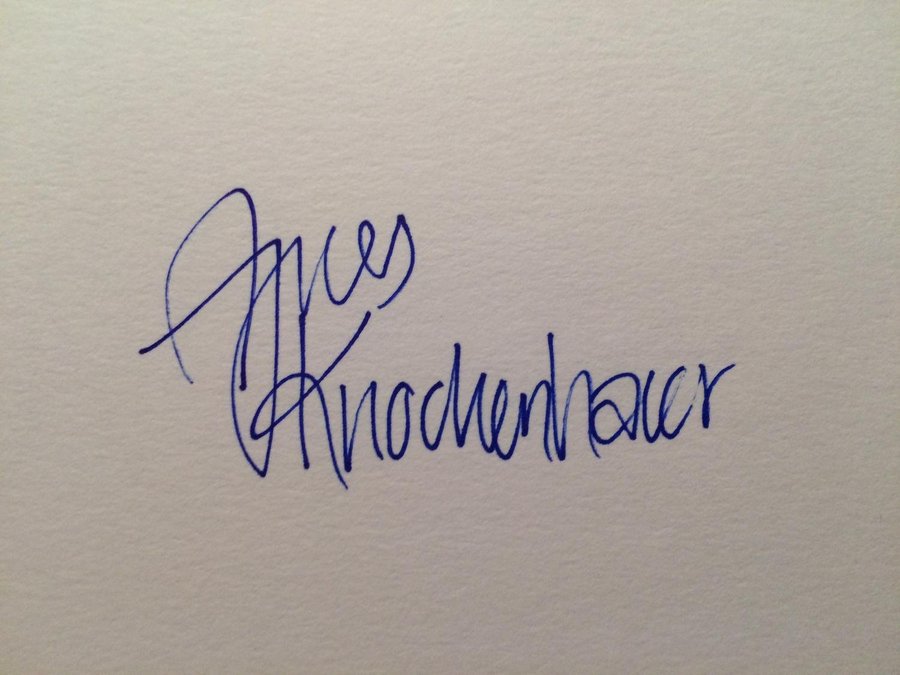 Ines
Knochenhauer